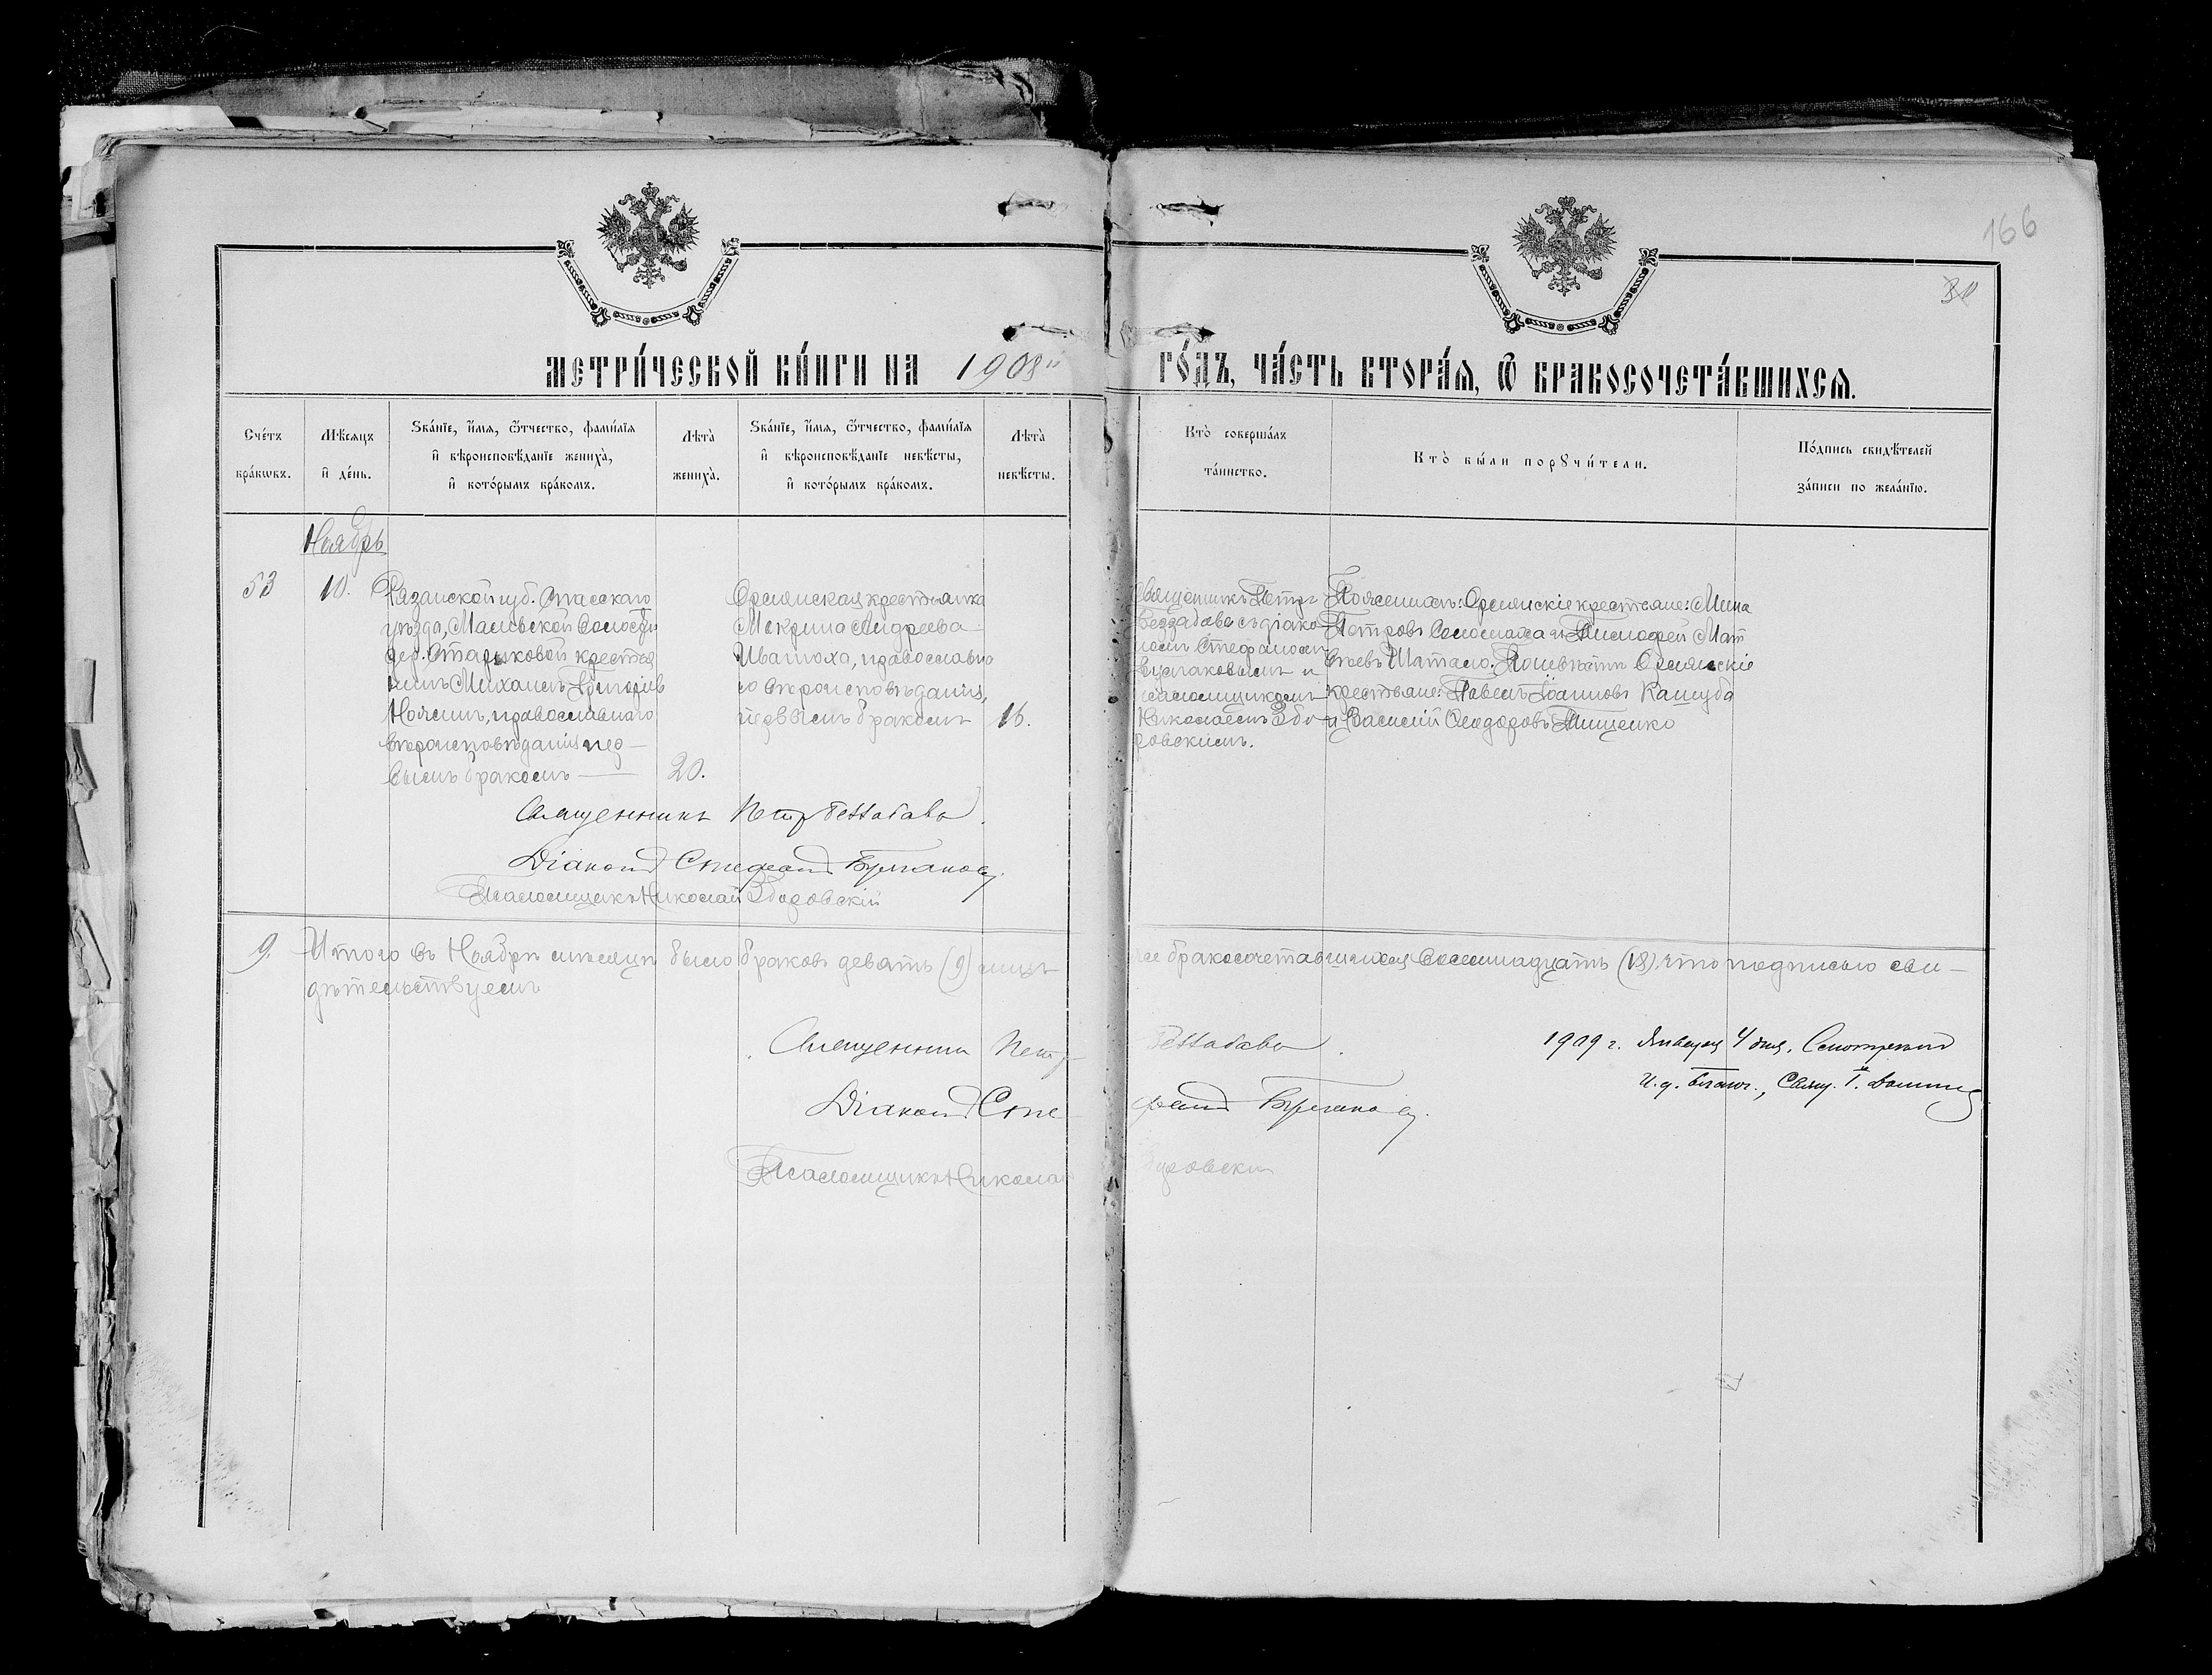 166
30
МЕТРИ́ЧЕСКОЙ КНИ́ГИ НА 1908й ГО́ДЪ, ЧА́СТЬ ВТОРА́Я, Ѡ БРАКОСОЧЕТА́ВШИХСЯ.
Счетъ браковъ.
Мѣсяцъ и день.
Званіе, имя, отчество, фамилія
и вѣроисповѣданіе жениха,
и которымъ бракомъ.
Лѣта
жениха.
Званіе, имя, отчество, фамилія
и вѣроисповѣданіе невѣсты,
и которымъ бракомъ.
Лѣта
невѣсты.
Кто совершалъ
таинство.
Кто были поручители.
Подпись свидѣтелей
записи по желанію.
Ноябрь
53
10.
Рязанской губ. Спасскаго
уѣзда, волости
дер. Старыковой крестья
нинъ Михаилъ Григоріев
православнаго
вѣроисповѣданія, пер-
вымъ бракомъ
20.
крестьянка
Макрина Андреева
православна
го вѣроисповѣданія,
первымъ бракомъ
16.
Священникъ Петръ
Беззабава съ діако-
номъ Стефаномъ
Булгаковымъ и
псаломщикомъ
Николаемъ Збо-
ровскимъ.
крестьяне: Мина
Петровъ Соломаха и Тимофей Мат
вѣевъ Шатало. По невѣстѣ
крестьяне: Павелъ Іоанновъ Кашуба
и Василій Ѳеодоровъ Тищенко
Священникъ Петръ Беззабава.
Діаконъ Стефанъ Булгаковъ.
Псаломщикъ Николай Зборовскій
9. Итого въ Ноябрѣ мѣсяцѣ было браковъ девять (9) лицъ
же бракосочетавшихся восемнадцать (18), что подписью сви-
дѣтельствуемъ
Священникъ Петръ Беззабава.
Діаконъ Стефанъ Булгаковъ.
Псаломщикъ Николай Зборовскій
1909 г. Января 4 дня. Смотрѣлъ
И. д. благоч., Свящ. І.